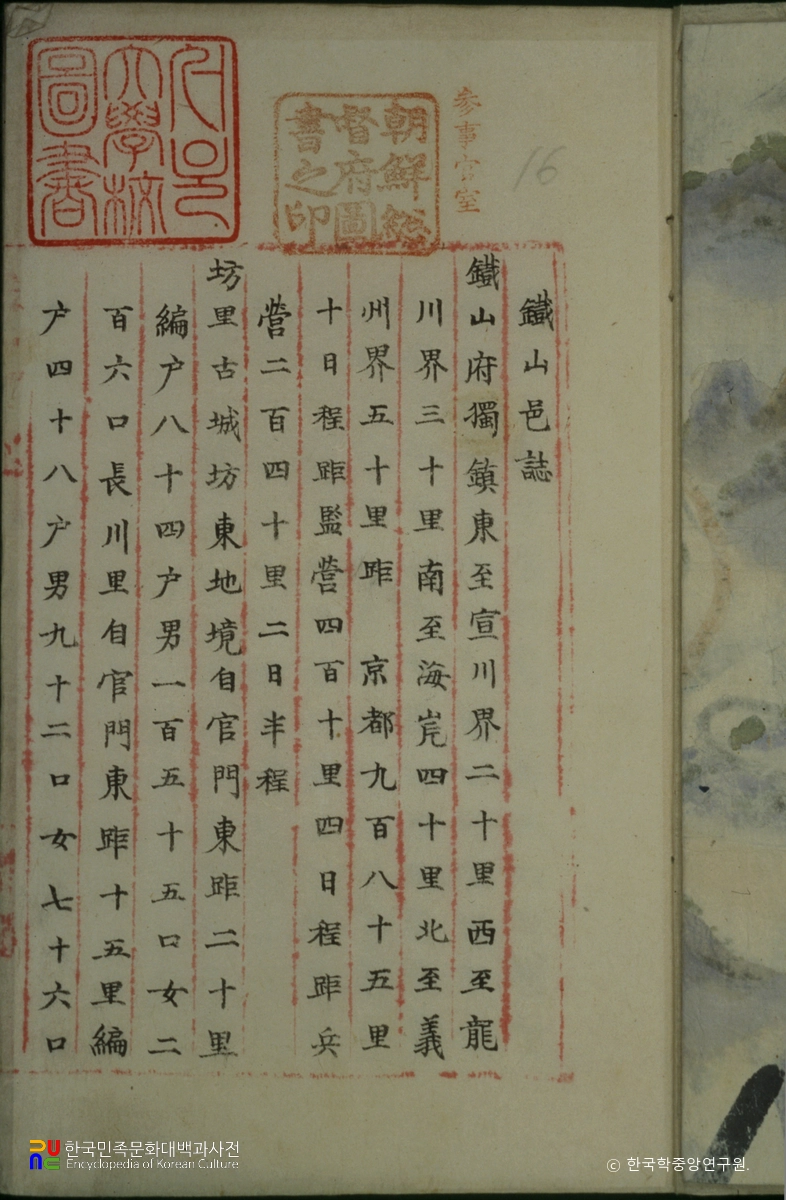 鐵山邑誌
鐵山府獨鎮東至宣川界二十里西至龍
川界三十里南至海岸四十里北至義
州界五十里距 京都九百八十五里
十日程距監營四百十里四日程距兵
營二百四十里二日半程
坊里古城坊東地境自官門東距二十里
編戶八十四戶男一百五十五口女二
百六口長川里自官門東距十五里編
戶四十八戶男九十二口女七十六口
参事官室
16
朝鮮総
督府圖
書之印
大學校
圖書
한국민족문화대백과사전
Encyclopedia of Korean Culture
ⓒ 한국학중앙연구원.